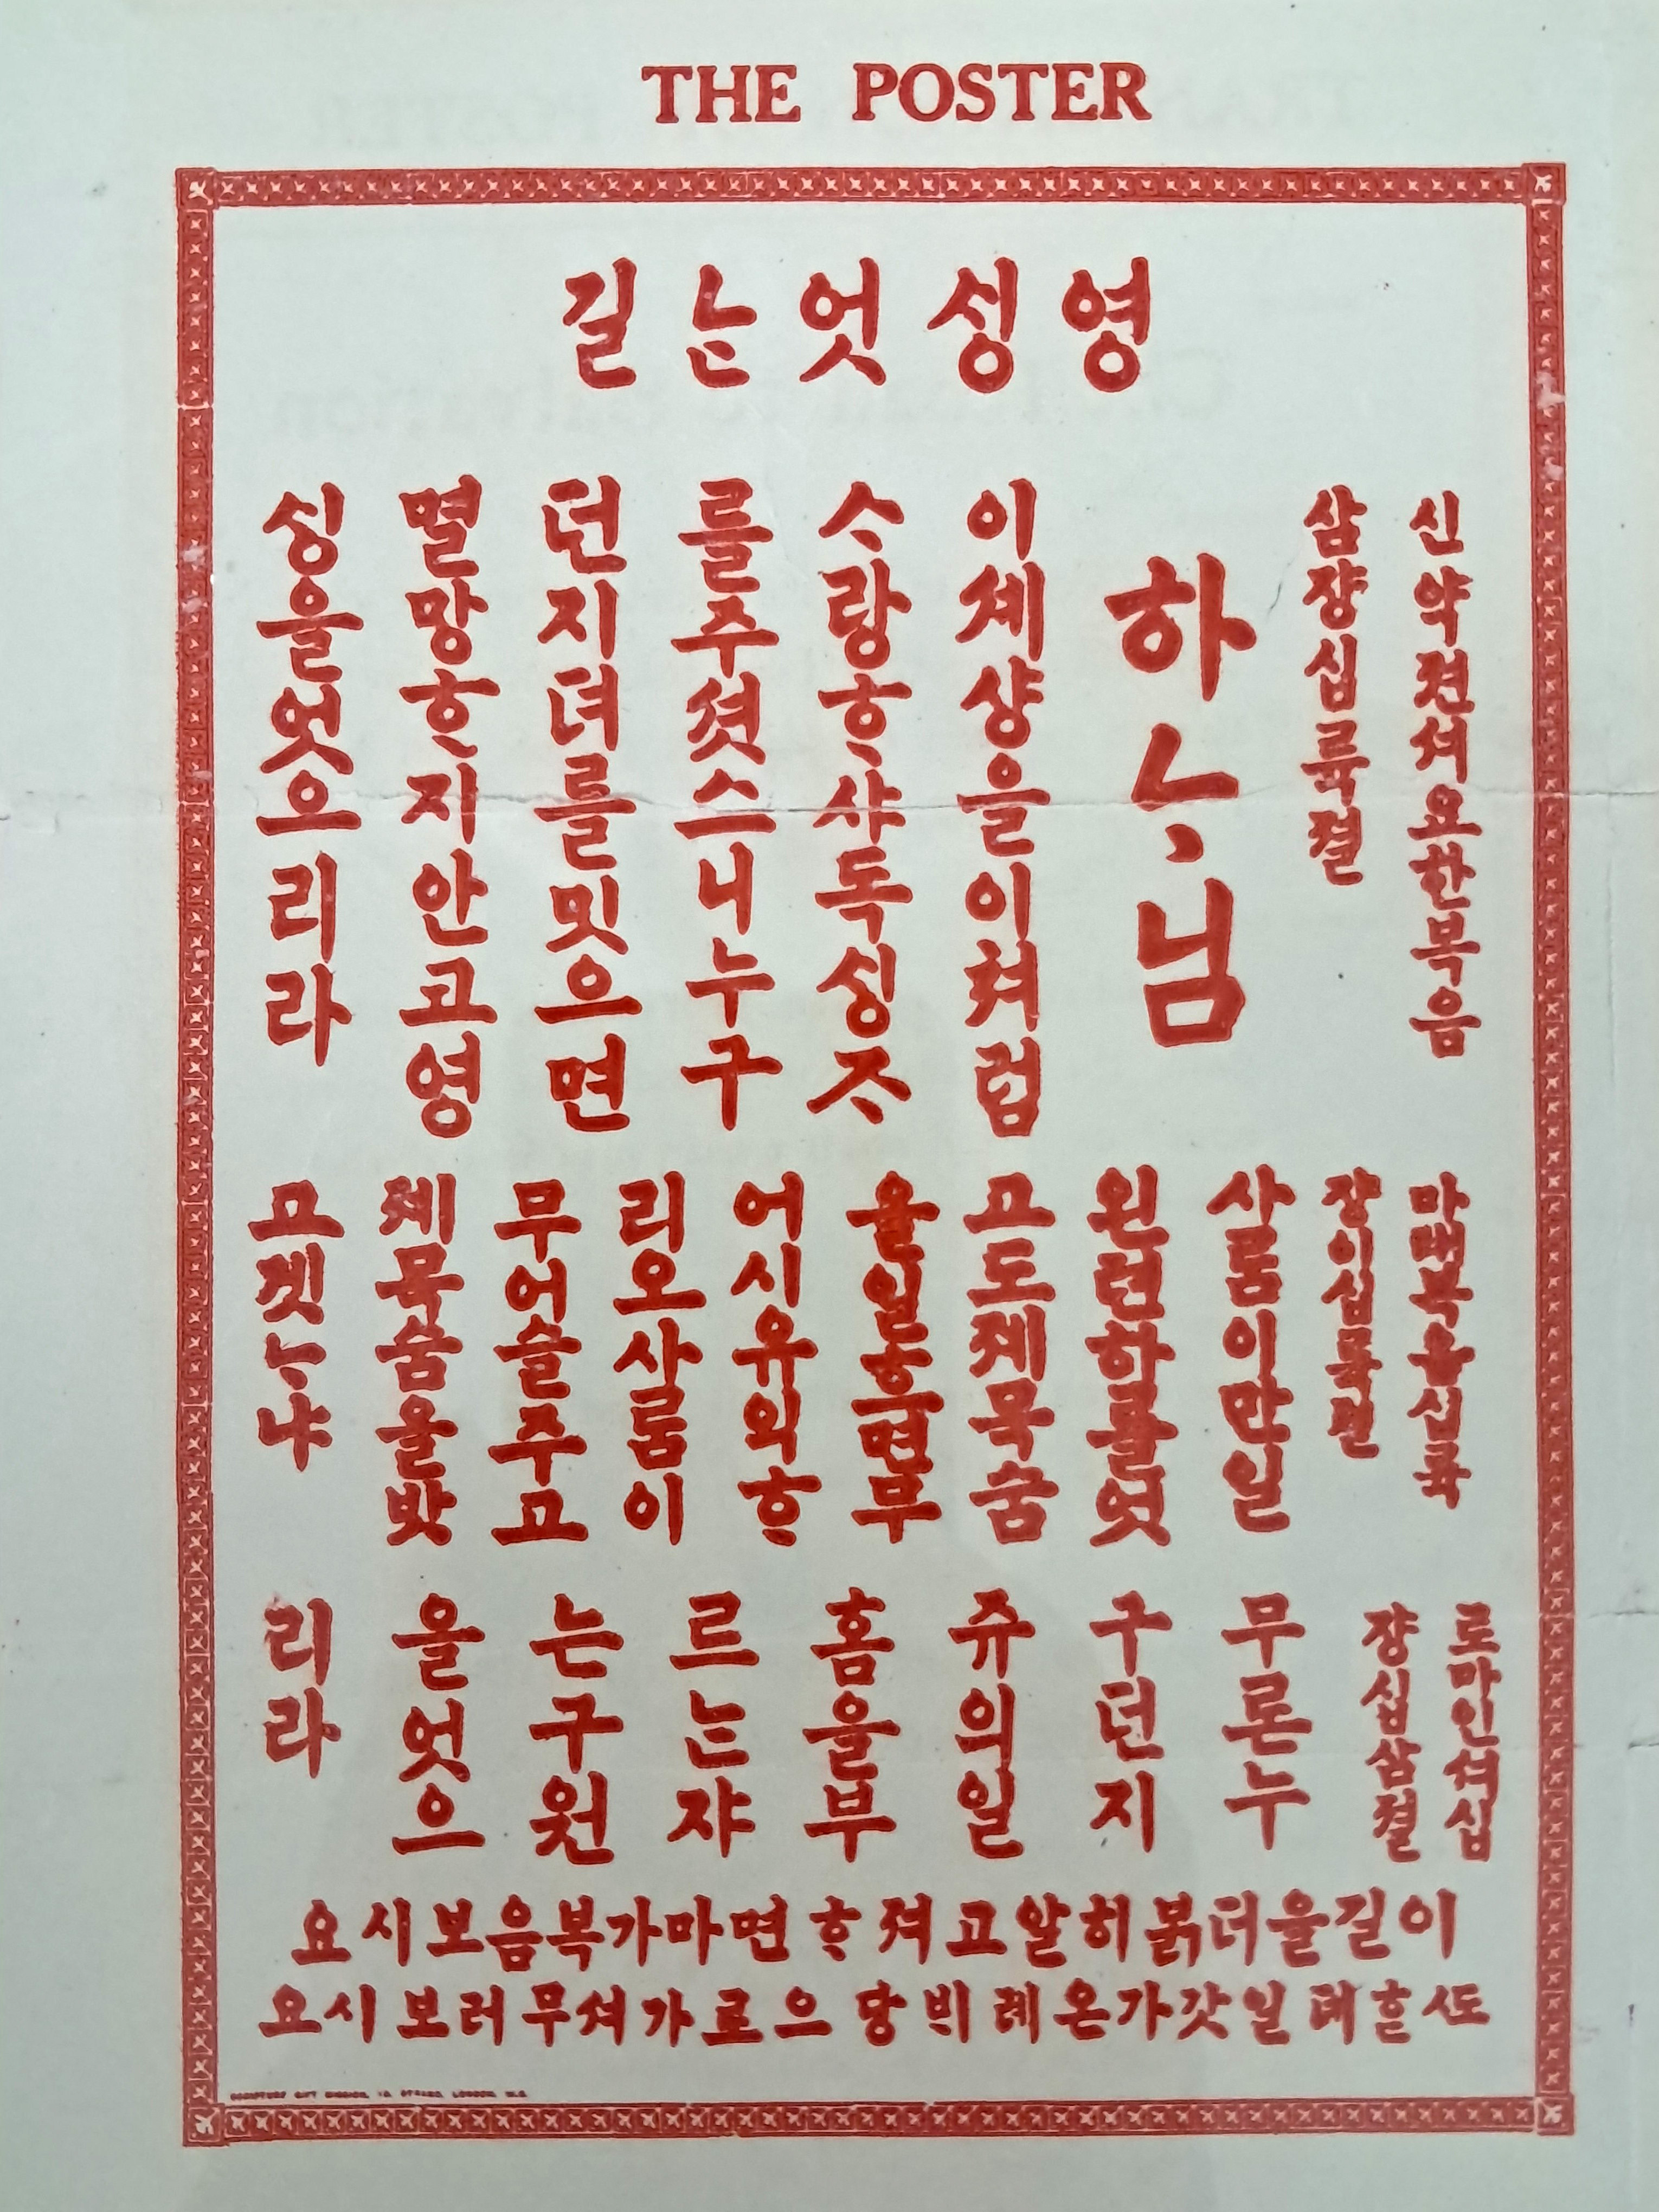 THE POSTER
영싱엇ᄂᆞᆫ길
신약젼셔요한복음
삼쟝십륙졀
하ᄂᆞ님
이셰샹을이쳐럼
ᄉᆞ랑ᄒᆞ샤독싱ᄌᆞ
를주셧스니누구
던지뎌를밋으면
멸망ᄒᆞ지안고영
싱을엇으리라
마태복음십륙
쟝이십륙졀
사룸이만일
왼텬하를엇
고도졔목숨
을일흐면무
어시유익ᄒᆞ
리오사룸이
무어슬주고
졔목숨을밧
고겟ᄂᆞ냐
로마인셔십
쟝십삼졀
무론누
구던지
쥬의일
홈을부
르ᄂᆞᆫ쟈
는구원
을엇으
리라
이길을더붉히알고져ᄒᆞ면마가복음보시요
ᄯᅩᄒᆞᆫ데일갓가온례빅당으로가셔무러보시요
SCRIPTURE GIFT MISSION, STRAND, LONDON, W.C.